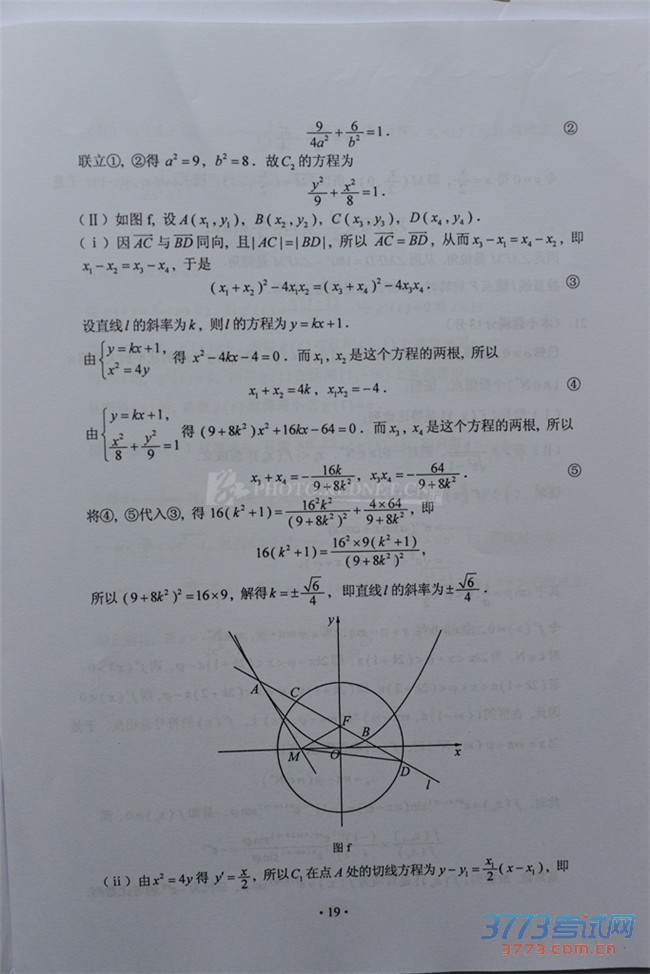 9/4a² + 6/b² = 1. ②
联立①, ②得 a²=9, b²=8. 故C₂的方程为
y²/9 + x²/8 = 1.
(Ⅱ) 如图 f, 设 A(x₁,y₁), B(x₂,y₂), C(x₃,y₃), D(x₄,y₄).
(ⅰ) 因 AC 与 BD 同向, 且|AC|=|BD|, 所以 AC=BD, 从而 x₃-x₁=x₄-x₂, 即
x₁-x₂=x₃-x₄, 于是
(x₁+x₂)²-4x₁x₂=(x₃+x₄)²-4x₃x₄. ③
设直线 l 的斜率为 k, 则 l 的方程为 y=kx+1.
由{y=kx+1, x²=4y 得 x²-4kx-4=0. 而 x₁, x₂是这个方程的两根, 所以
x₁+x₂=4k, x₁x₂=-4. ④
由{y=kx+1, x²/8+y²/9=1 得 (9+8k²)x²+16kx-64=0. 而 x₃, x₄是这个方程的两根, 所以
x₃+x₄=-16k/(9+8k²), x₃x₄=-64/(9+8k²). ⑤
将④, ⑤代入③, 得 16(k²+1)=16²k²/(9+8k²)²+4×64/(9+8k²), 即
16(k²+1)=16²×9(k²+1)/(9+8k²)²,
所以 (9+8k²)²=16×9, 解得 k=±√6/4, 即直线 l 的斜率为±√6/4.
y
A
C
F
B
M
O
x
D
l
图 f
(ⅱ) 由 x²=4y 得 y′=x/2, 所以C₁在点 A 处的切线方程为 y-y₁=x₁/2(x-x₁), 即
·19·
3773考试网
3773.com.cn